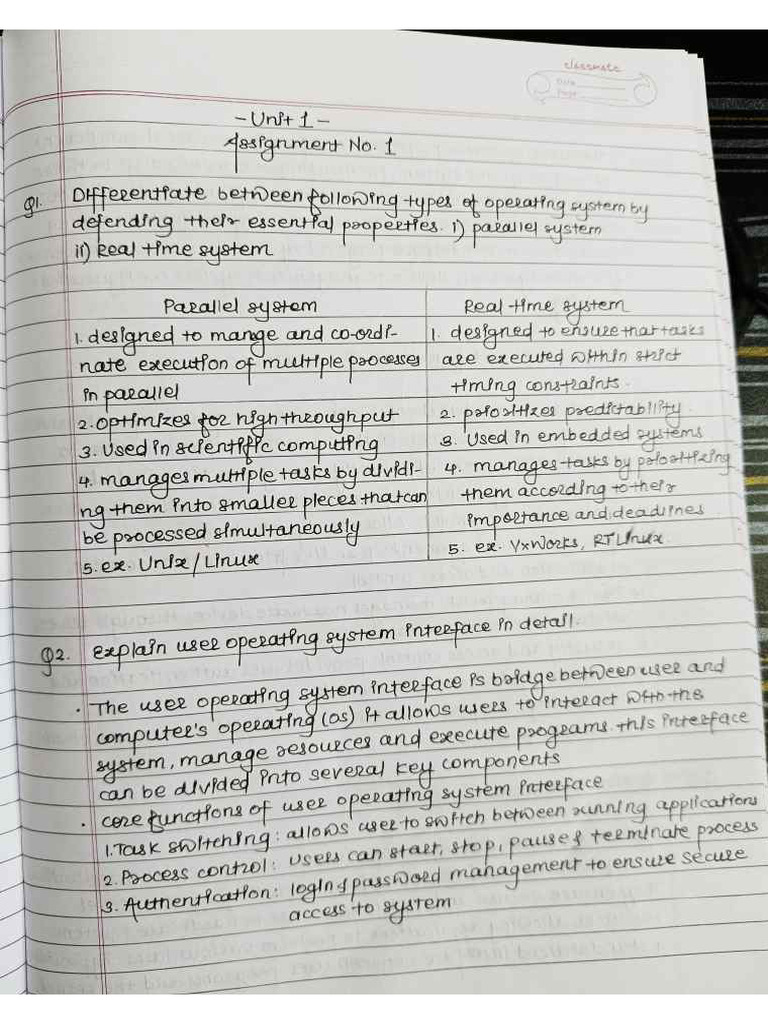 classmate
Date
Page
- Unit 1 -
Assignment No. 1
Q1. Differentiate between following types of operating system by
defending their essential properties. i) parallel system
ii) Real time system
Parallel system
1. designed to mange and co-ordi-
nate execution of multiple processes
in parallel
2. optimizes for high throughput
3. Used in scientific computing
4. manages multiple tasks by dividi-
ng them into smaller pieces that can
be processed simultaneously
5. ex. Unix / Linux
Real-time system
1. designed to ensure that tasks
are executed within strict
timing constraints.
2. prioritizes predictability.
3. Used in embedded systems
4. manages tasks by prioritizing
them according to their
importance and deadlines
5. ex. VxWorks, RTLinux.
Q2. explain user operating system interface in detail.
• The user operating system interface is bridge between user and
computer's operating (os) it allows users to interact with the
system, manage resources and execute programs. this interface
can be divided into several key components
• core functions of user operating system interface
1. Task switching: allows user to switch between running applications
2. Process control: users can start, stop, pause & terminate process
3. Authentication: login & password management to ensure secure
access to system